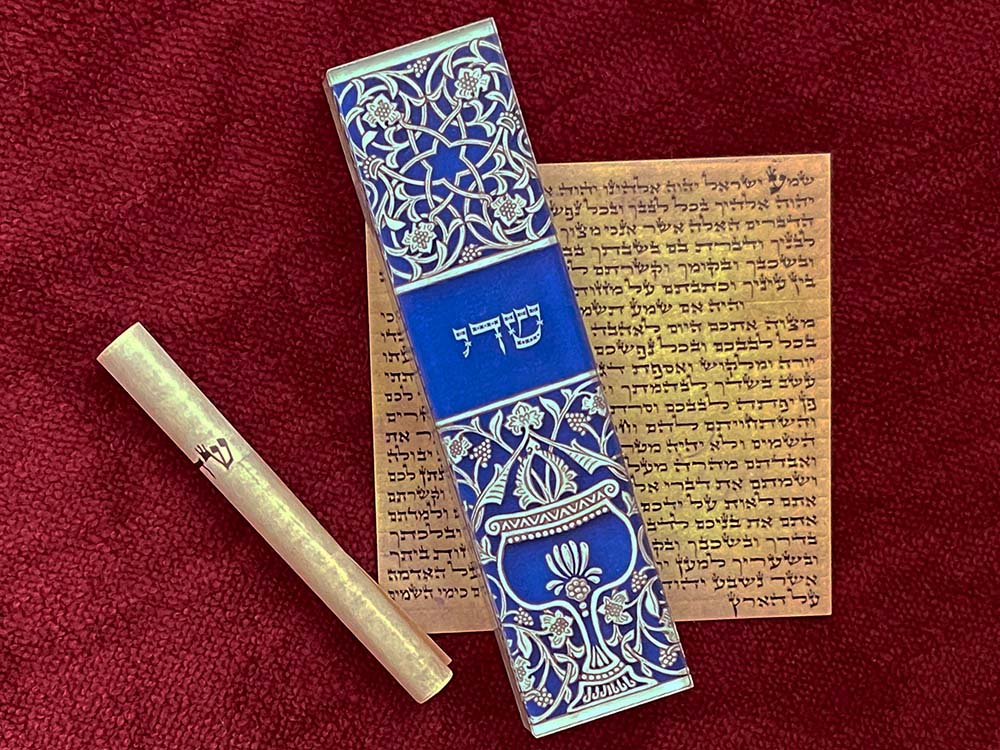 שדי
ש
שמע ישראל יהוה אלהינו יהוה
יהוה אלהיך בכל לבבך ובכל
הדברים האלה אשר אנכי מצוך
לבניך ודברת בם בשבתך
ובשכבך ובקומך וקשרתם
בין עיניך וכתבתם על מזזות
והיה אם שמע
מצוה אתכם היום לאהבה
בכל לבבכם ובכל נפשכם
יורה ומלקוש ואספת
עשב בשדך לבהמתך
פן יפתה לבבכם
והשתחויתם להם את
השמים ולא יהיה יבולה
ואבדתם מהרה מעל לכם
ושמתם את דברי וקשרתם
אתם לאות על ידכם ולמדתם
אתם את בניכם ובלכתך
בדרך ובשכבך ביתך
ובשעריך למען על האדמה
אשר נשבע יהוה כימי השמים
על הארץ